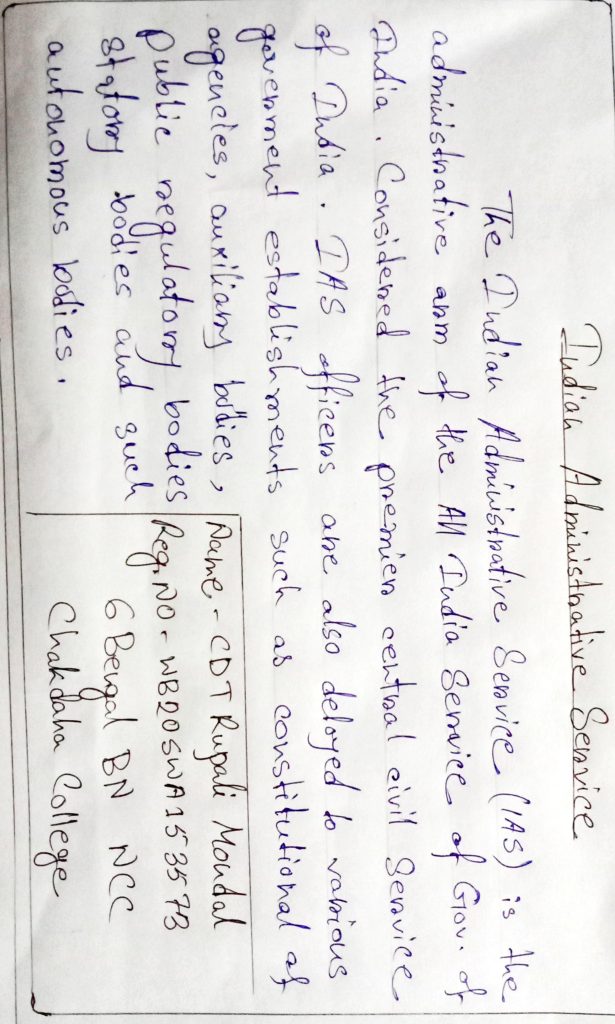 Indian Administrative Service
The Indian Administrative Service (IAS) is the
administrative arm of the All India Service of Gov. of
India. Considered the premier central civil Service
of India. IAS officers are also deloyed to various
government establishments such as constitutional of
agencies, auxiliary bodies,
Public regulatory bodies
statory bodies and such
autonomous bodies.
Name - CDT Rupali Mondal
Reg. NO - WB20SWA153573
6 Bengal BN NCC
Chakdaha College